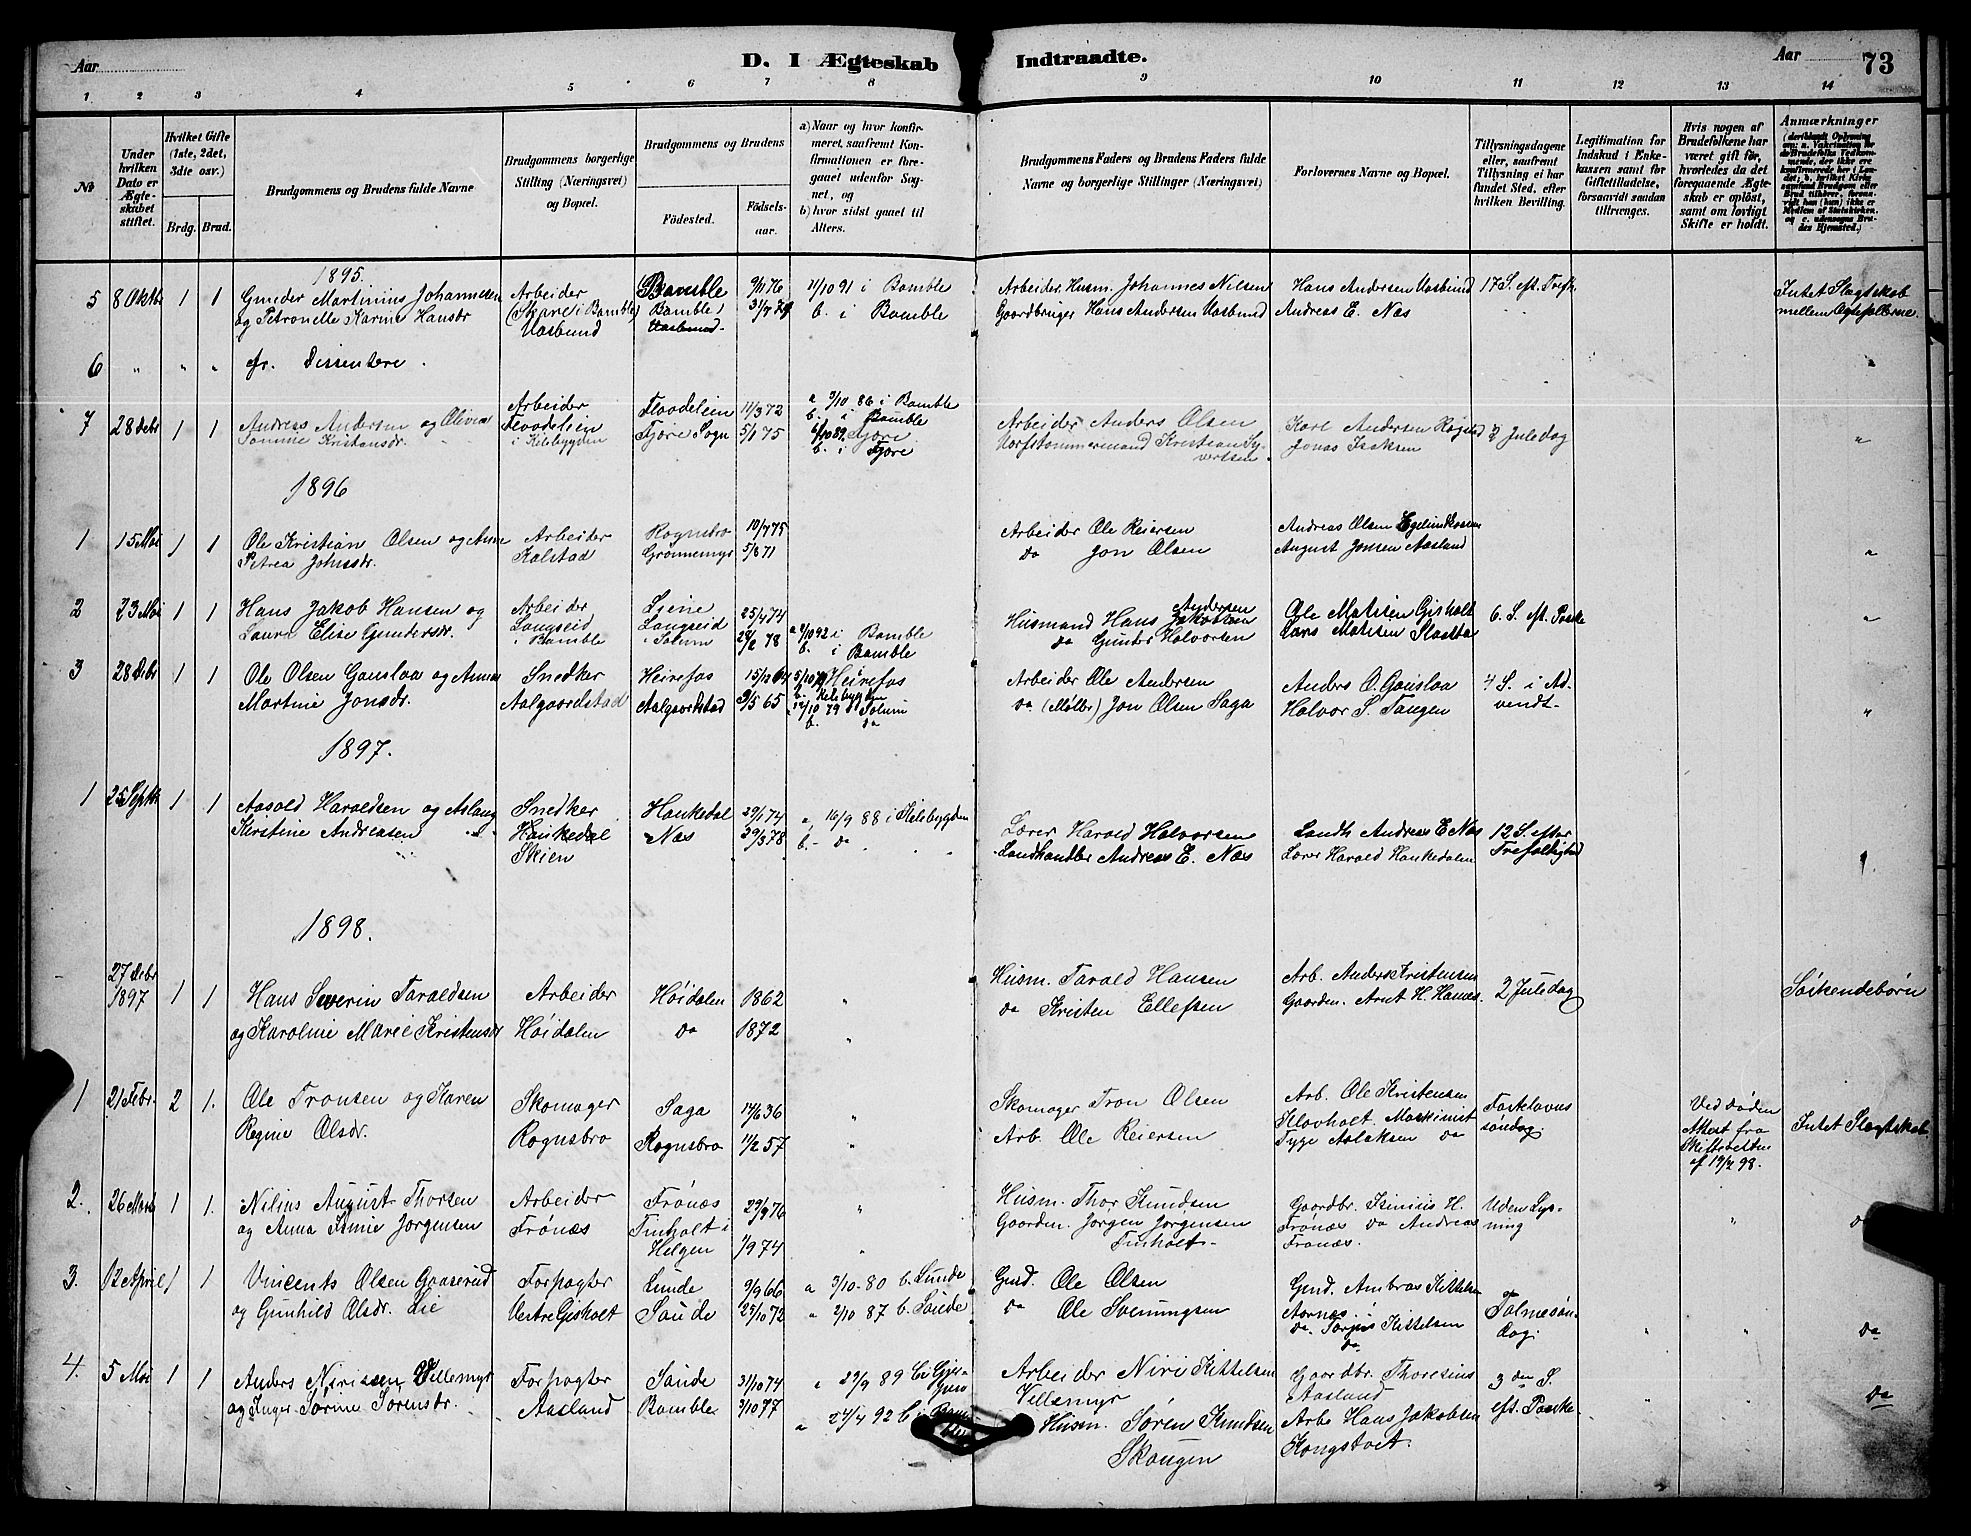 Aar
D. I Ægteskab Indtraadte.
Aar 73
1 2 3 4 5 6 7 8 9 10 11 12 13 14
No
Under hvilken Dato er Ægteskabet stiftet.
Hvilket Gifte (1ste, 2det, 3die osv.)
Brdg. Brud.
Brudgommens og Brudens fulde Navne
Brudgommens borgerlige Stilling (Næringsvei) og Bopæl.
Brudgommens og Brudens
Födested. Födsels-aar.
a) Naar og hvor konfirmeret, saafremt Konfirmationen er foregaaet udenfor Sognet, og
b) hvor sidst gaaet til Alters.
Brudgommens Faders og Brudens Faders fulde Navne og borgerlige Stillinger (Næringsvei)
Forlovernes Navne og Bopæl.
Tillysningsdagene eller, saafremt Tillysning ei har fundet Sted, efter hvilken Bevilling.
Legitimation for Indskud i Enkekassen samt for Giftetilladelse, forsaavidt saadan tiltrænges.
Hvis nogen af Brudefolkene har været gift för, hvorledes da det foregaaende Ægteskab er oplöst, samt om lovligt Skifte er holdt.
Anmærkninger
1895.
5 8 Oktbr 1 1 Gunder Martinius Johannesen Arbeider Bamble 9/11 76 11/10 91 i Bamble Arbeider, Husm. Johannes Nilsen Hans Andersen Aasbund 17 S. eft. Trefk. Intet Slagtskab
og Petronelle Karine Hansdr (Skare i Bamble) Bamble, 31/7 79 b. i Bamble Gaardbruger Hans Andersen Aasbund Andreas E. Næs mellem Ægtefællerne.
Aasbund Aasbund
6 " " " fr. Dissentere. "
7 28 Debr 1 1 Andreas Andersen og Olivia Arbeider Floodeleien 11/3 72 a 3/10 86 i Bamble Arbeider Anders Olsen Karl Andersen Røgstad 2 Juledag "
Kristansdr. Floodeleien Fjøre Sogn 5/1 75 b. i Bamble Værftstømmermand Kristian Sy- Jonas Isaksen
i Kilebygden 6/10 89 Fjøre. vertsen.
b. i Fjøre
1896
1 15 Mai 1 1 Ole Kristian Olsen og Anne Arbeider Rognsbro 10/7 75 Arbeider Ole Reiersen Andreas Olsen "
Petrea Johnsdr. Kalstad Grønnemyr 5/8 71 da Jon Olsen August Jonsen Aasland
2 23 Mai 1 1 Hans Jakob Hansen og Arbeider 25/4 74 Husmand Hans Andersen Jakobsen Ole Matisen Gisholt 6. S. eft. Paaske "
Laura Elise Gundersdr. Langseid Langseid 2/2 78 a 2/10 92 i Bamble da Gunder Halvorsen Lars Matisen
i Bamble i Solum b. i Bamble
3 28 Debr 1 1 Ole Olsen Gonslaa og Anne Snedker Heirefos 15/12 64 5/10 79 Heirefos Arbeider Ole Andersen Anders O. Gonslaa 4 S. i Ad- "
Martine Jonsdr. Aalgaardstad Aalgaardstad 3/5 65 b. Kilebygden da (Møller) Jon Olsen Saga Halvor S. Tangen vendt-
12/10 79 Solum
b. da
1897.
1 25 Septbr 1 1 Aasold Haroldsen og Aslaug Snedker Haukedal 29/1 74 a, 16/9 88 i Kilebygden Lærer Harald Halvorsen Landh. Andreas E Næs 12 S. efter
Kirstine Andreasen Haukedal Næs 29/3 78 b.- da Landhandler Andreas E. Næs Lærer Harald Haukedalen Trefoldighed
Skien
1898.
27 Debr 1897 1 1 Hans Severin Taraldsen Arbeider Høidalen 1862 " Husm. Tarald Hansen Arb. Anders Kristensen 2 Juledag Söskendebörn
og Karoline Marie Kristensdr Høidalen do 1872 " da Kristen Ellefsen Gaardm. Arnt H. Hanæs.
1 21 Febr. 2 1. Ole Tronsen og Karen Skomager Saga 14/6 36 " Skomager Tron Olsen Arb. Ole Kristensen Fastelavns Ved Døden Intet Slagtskab
Regine Olsdr. Rognsbro Rognsbro 11/2 57 " Arb. Ole Reiersen Klovholt. Maskinist söndag. Attest fra
Tyge Aslaksen da Skifteretten
af 19/2 98.
2. 26 Marts 1 1. Nilius August Thorsen Arbeider Frönæs 29/9 76 " Husm. Thor Knudsen Gaardbr. Isimiis H. Uden Lys- " da
og Anna Amie Jørgensen Frönæs Finholt i 1/9 74 " Gaardm. Jørgen Jörgensen Frönæs da Andreas ning
Helgen Finholt- Frönæs.
3. 12 April 1 1 Vincents Olsen Gaaserud Forpagter Lunde 9/9 66 a 3/10-80 b. Lunde Gmd. Ole Olsen Gmd. Ambros Kittelsen Palmesön- " " da
og Gunhild Olsdr. Lie Vestre Gisholt Saude 25/10 72 " 2/10 87 b. Saude da Ole Sveningsen Aarnæs, dag.
da. Kittelsen
da
4. 5 Mai 1 1 Anders Nirisen Villemyr Forpagter Saude 31/10 74 " 29/9 89 Arbeider Niri Kittelsen Gaardbr. Thoresius 3 die S. da
og Inger Sørine Sørensdr. Aasland Bamble 3/10 77 a 24/4 92 b. i Bam Villemyr Aasland eft. Paaske.
Husm. Søren Knudsen Arb. Hans Jakobsen
Skougen Kongstoet.